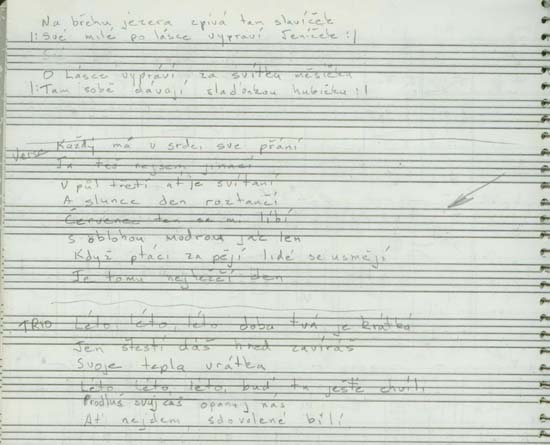 Na břehu jezera zpívá tam slavíček
|: Své milé po lásce vypraví Jeníček :|
O lásce vypráví za svitku měsíčku
|: Tam sobě dávají slaďonkou hubičku :|
Verse Každý má v srdci sve přání
Ja též nejsem jinací
V půl třetí ať je svítání
A slunce den roztančí
Červenec ten se mi líbí
S oblohou modrou jak len
Když ptáci zapějí lidé se usmějí
Je tomu nejleččí den
TRIO Léto, léto, léto doba tvá je krátká
Jen štestí dáš hned zavíráš
Svoje tepla vrátka
Léto léto léto, buď tu ješte chvíli
Prodluš svuj čas opantej nás
Ať nejdem, sdovolené bílí